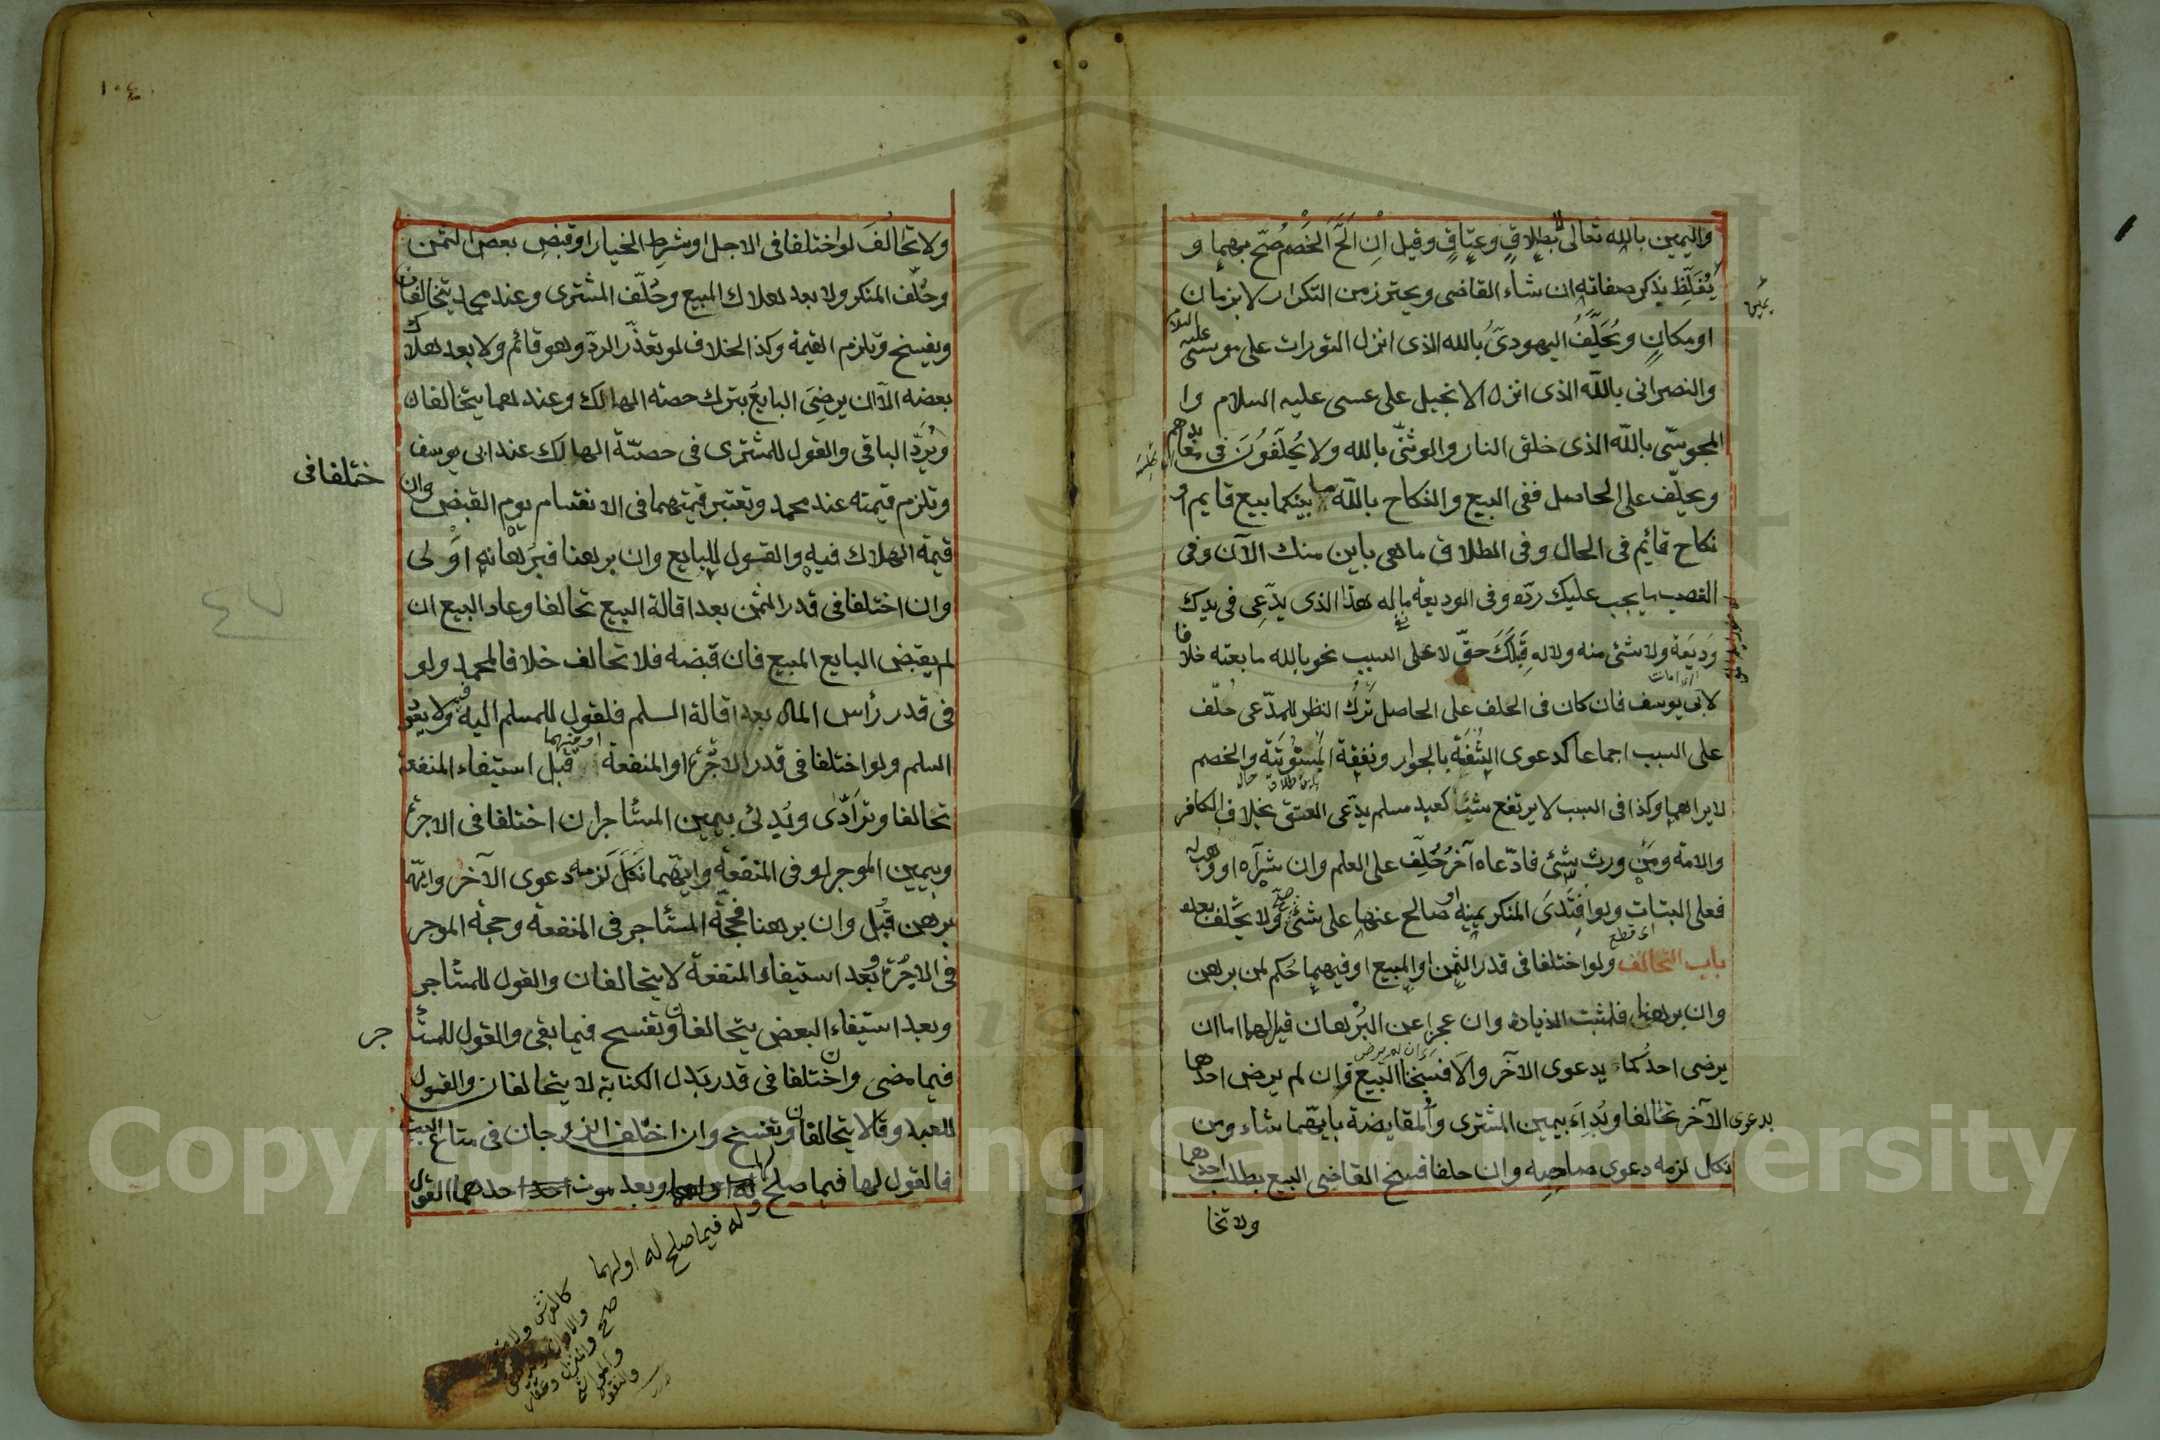 واليمين بالله تعالى لا بطلاق وعتاق وقيل ان الح الخصم صح بهما و
يغلظ بذكر صفاته ان شاء القاضى ويحترز من التكرار لا بزمان
او مكان ويحلف اليهودى بالله الذى انزل التورات على موسى عليه السلام
والنصرانى بالله الذى انزل الانجيل على عسى عليه السلام وا
المجوسى بالله الذى خلق النار والوثنى بالله ولا يحلفون فى معابدهم
ويحلف على الحاصل ففى البيع والنكاح بالله ما بينكما بيع قايم او
نكاح قائم فى الحال وفى الطلاق ما هى باين منك الآن وفى
الغصب ما يجب عليك رده وفى الوديعة ما له هذا الذى يدعى فى يدك
وديعة ولا شئ منه ولا له قبلك حق لا على السبب نحو بالله ما بعته خلافا
لابى يوسف فان كان فى الحلف على الحاصل ترك النظر للمدعى حلف
على السبب اجماعا كدعوى الشفعة بالجوار ونفقة المبتوتة والخصم
لا يراهما وكذا فى السبب لا يرتفع شيئا كعبد مسلم يدعى العتق بخلاف الكافر
والامة ومن ورث بشئ فادعاه آخر حلف على العلم وان شرآه او وهب له
فعلى البتات ولو افتدى المنكر يمينه او صالح عنها على شئ صح ولا يحلف بعده
اى قطع
باب التحالف ولو اختلفا فى قدر الثمن او المبيع او فيهما حكم لمن برهن
وان برهنا فلمثبت الذيادة وان عجزا عن البرهان قيل لهما اما ان
يرضى احدكما بدعوى الآخر والا فسخنا البيع فان لم يرض احدهما
بدعوى الآخر تحالفا وبداء بيمين المشترى والمقايضة بايهما شاء ومن
نكل لزمه دعوى صاحبه وان حلفا فسخ القاضى البيع بطلب احدهما
ولا تحا
١٠٤
ولا تحالف لو اختلفا فى الاجل او شرط الخيار او قبض بعض الثمن
وحلف المنكر ولا بعد هلاك المبيع وحلف المشترى وعند محمد يتخالفان
ويفسخ وتلزم القيمة وكذا الخلاف لو تعذر الرد وهو قائم ولا بعد هلاك
بعضه الا ان يرضى البايع بترك حصة الهالك وعندهما يتخالفان
ويرد الباقى والقول للمشترى فى حصة الهالك عند ابى يوسف
وتلزم قيمته عند محمد وتعتبر قيمتهما فى الانقسام يوم القبض وان
ختلفا فى
قيمة الهلاك فيه والقول للبايع وان برهنا فبرهانه اولى
وان اختلفا فى قدر الثمن بعد اقالة البيع تحالفا وعاد البيع ان
لم يقبض البايع المبيع فان قبضه فلا تحالف خلافا لمحمد ولو
فى قدر رأس المال بعد اقالة السلم فلقول للمسلم اليه ولا يعود
السلم ولو اختلفا فى قدر الاجرة او المنفعة او فيهما قبل استيفاء المنفعة
تحالفا وترادى وبدئ بيمين المستأجر ان اختلفا فى الاجرة
وبيمين الموجر لو فى المنفعة وايهما نكل لزمه دعوى الآخر وايهما
برهن قبل وان برهنا فحجة المستأجر فى المنفعة وحجة الموجر
فى الاجرة وبعد استيفاء المنفعة لا يتحالفان والقول للمستأجر
وبعد استيفاء البعض يتحالفان وتفسخ فيما بقى والقول للمستأ
جر
فيما مضى وان اختلفا فى قدر بدل الكتابة لا يتحالفان والقول
للعبد وقالا يتحالفان وتفسخ وان اختلف الزوجان فى متاع البيت
فالقول لها فيما صلح لها وبعد موت احدهما القول
وله فيما صلح له او لهما
Copyright © King Saud University